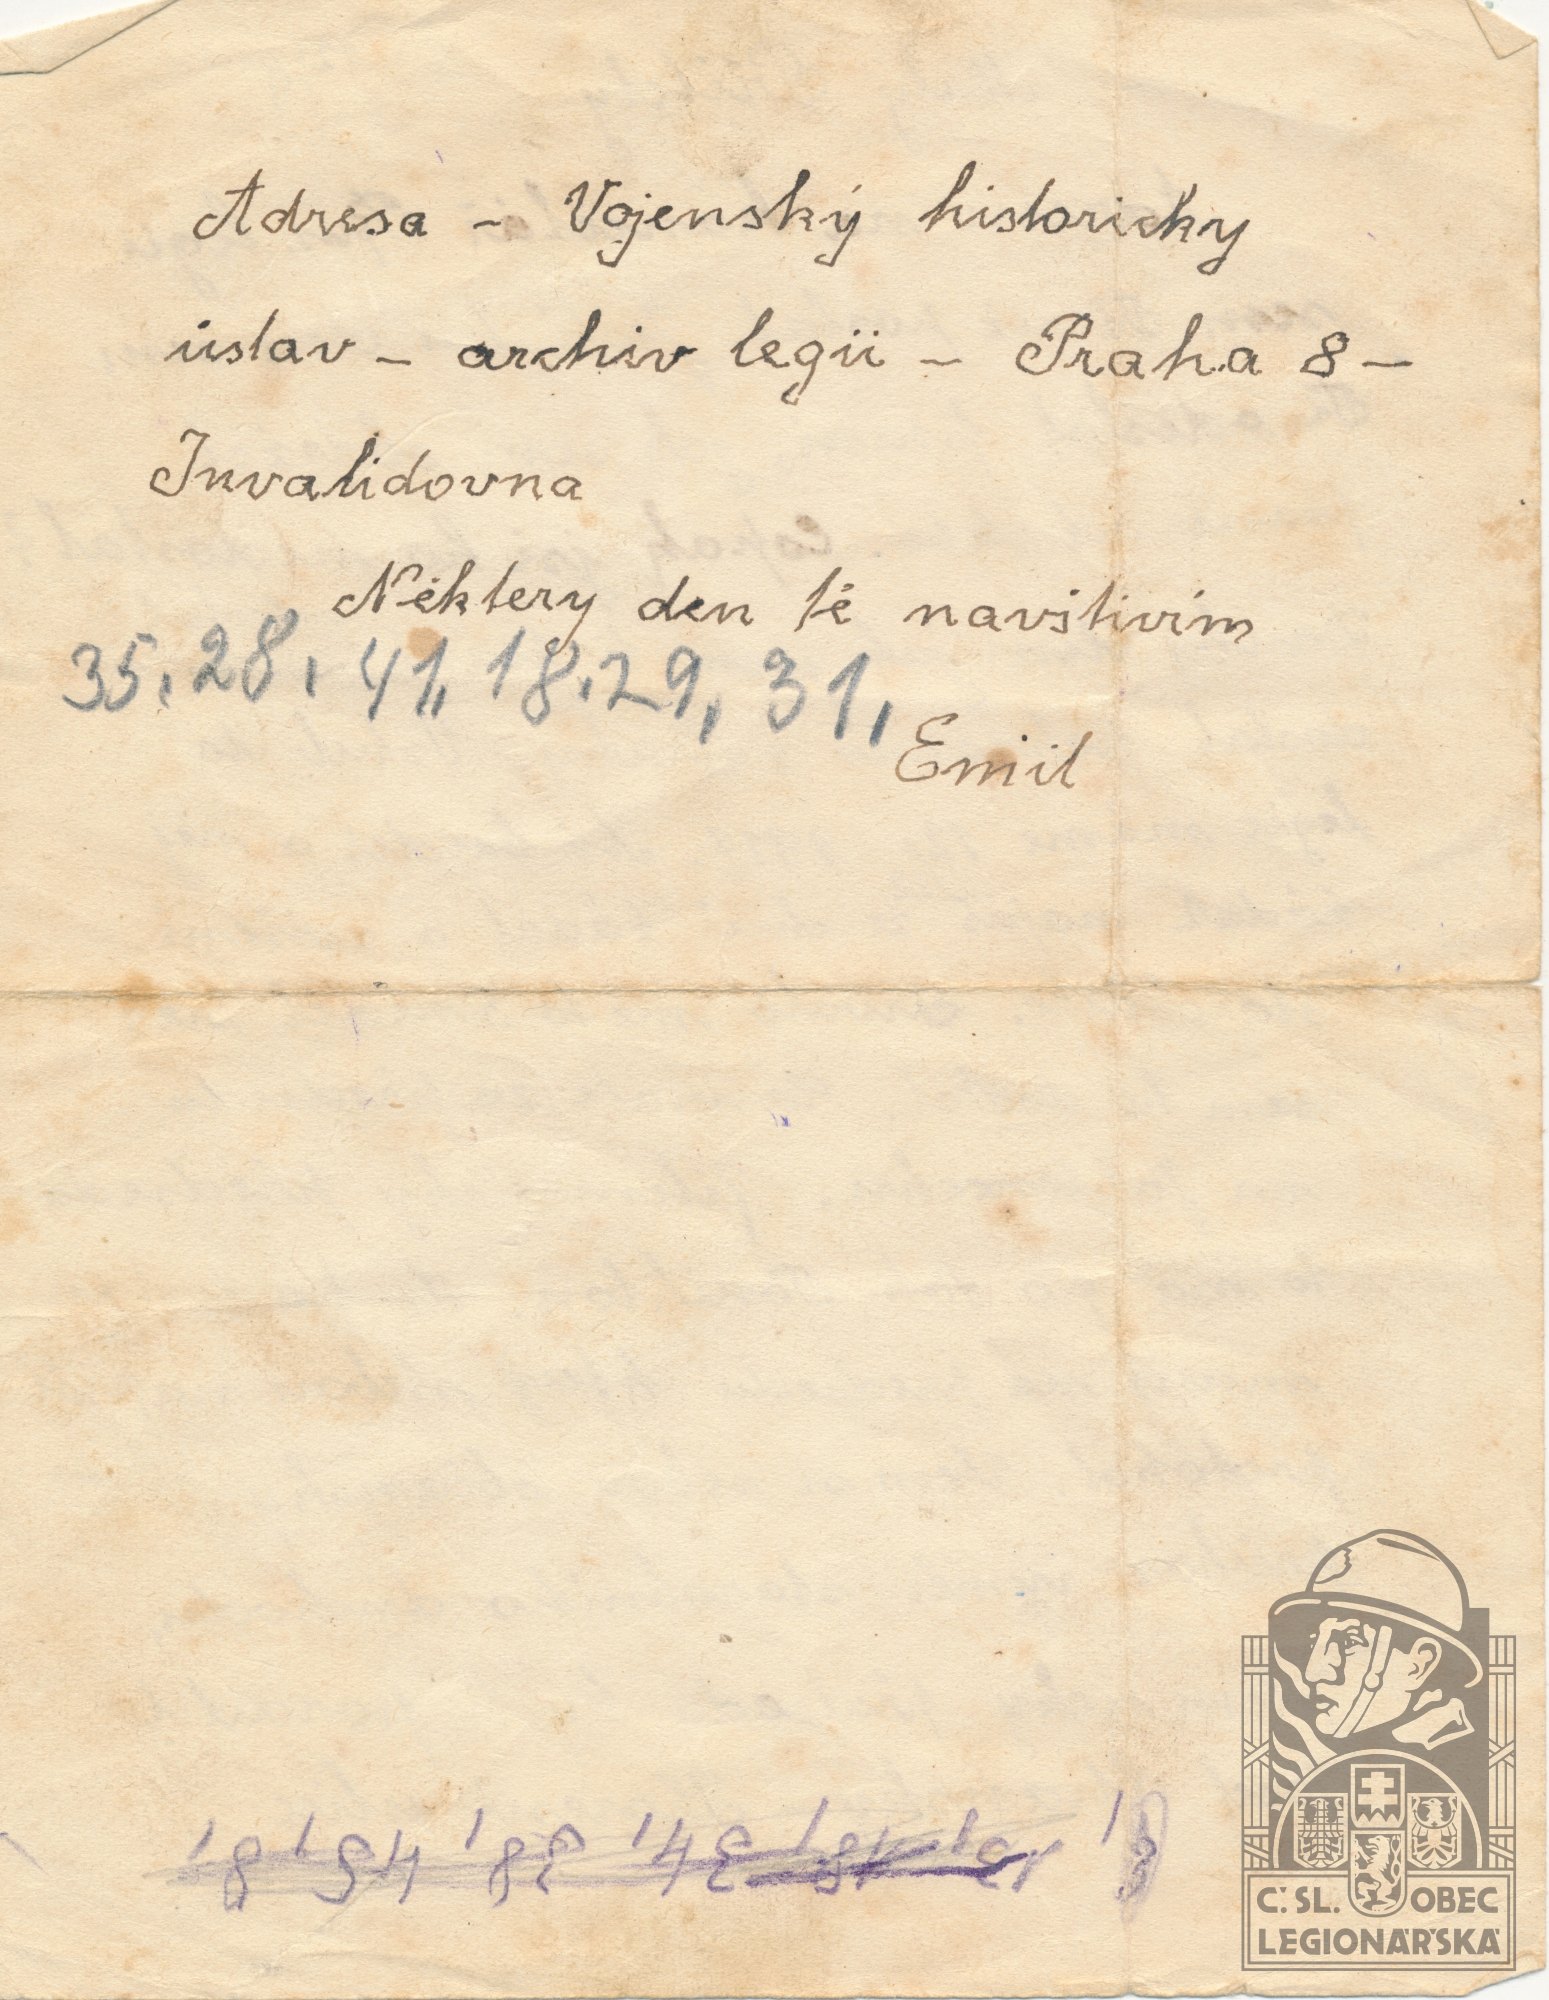 Adresa - Vojenský historicky
ústav - archiv legii - Praha 8 -
Invalidovna
Některy den tě navštivím
35, 28, 41, 18, 29, 31,
Emil
8, 45, 38, 34,
Č.SL. OBEC
LEGIONÁŘSKÁ